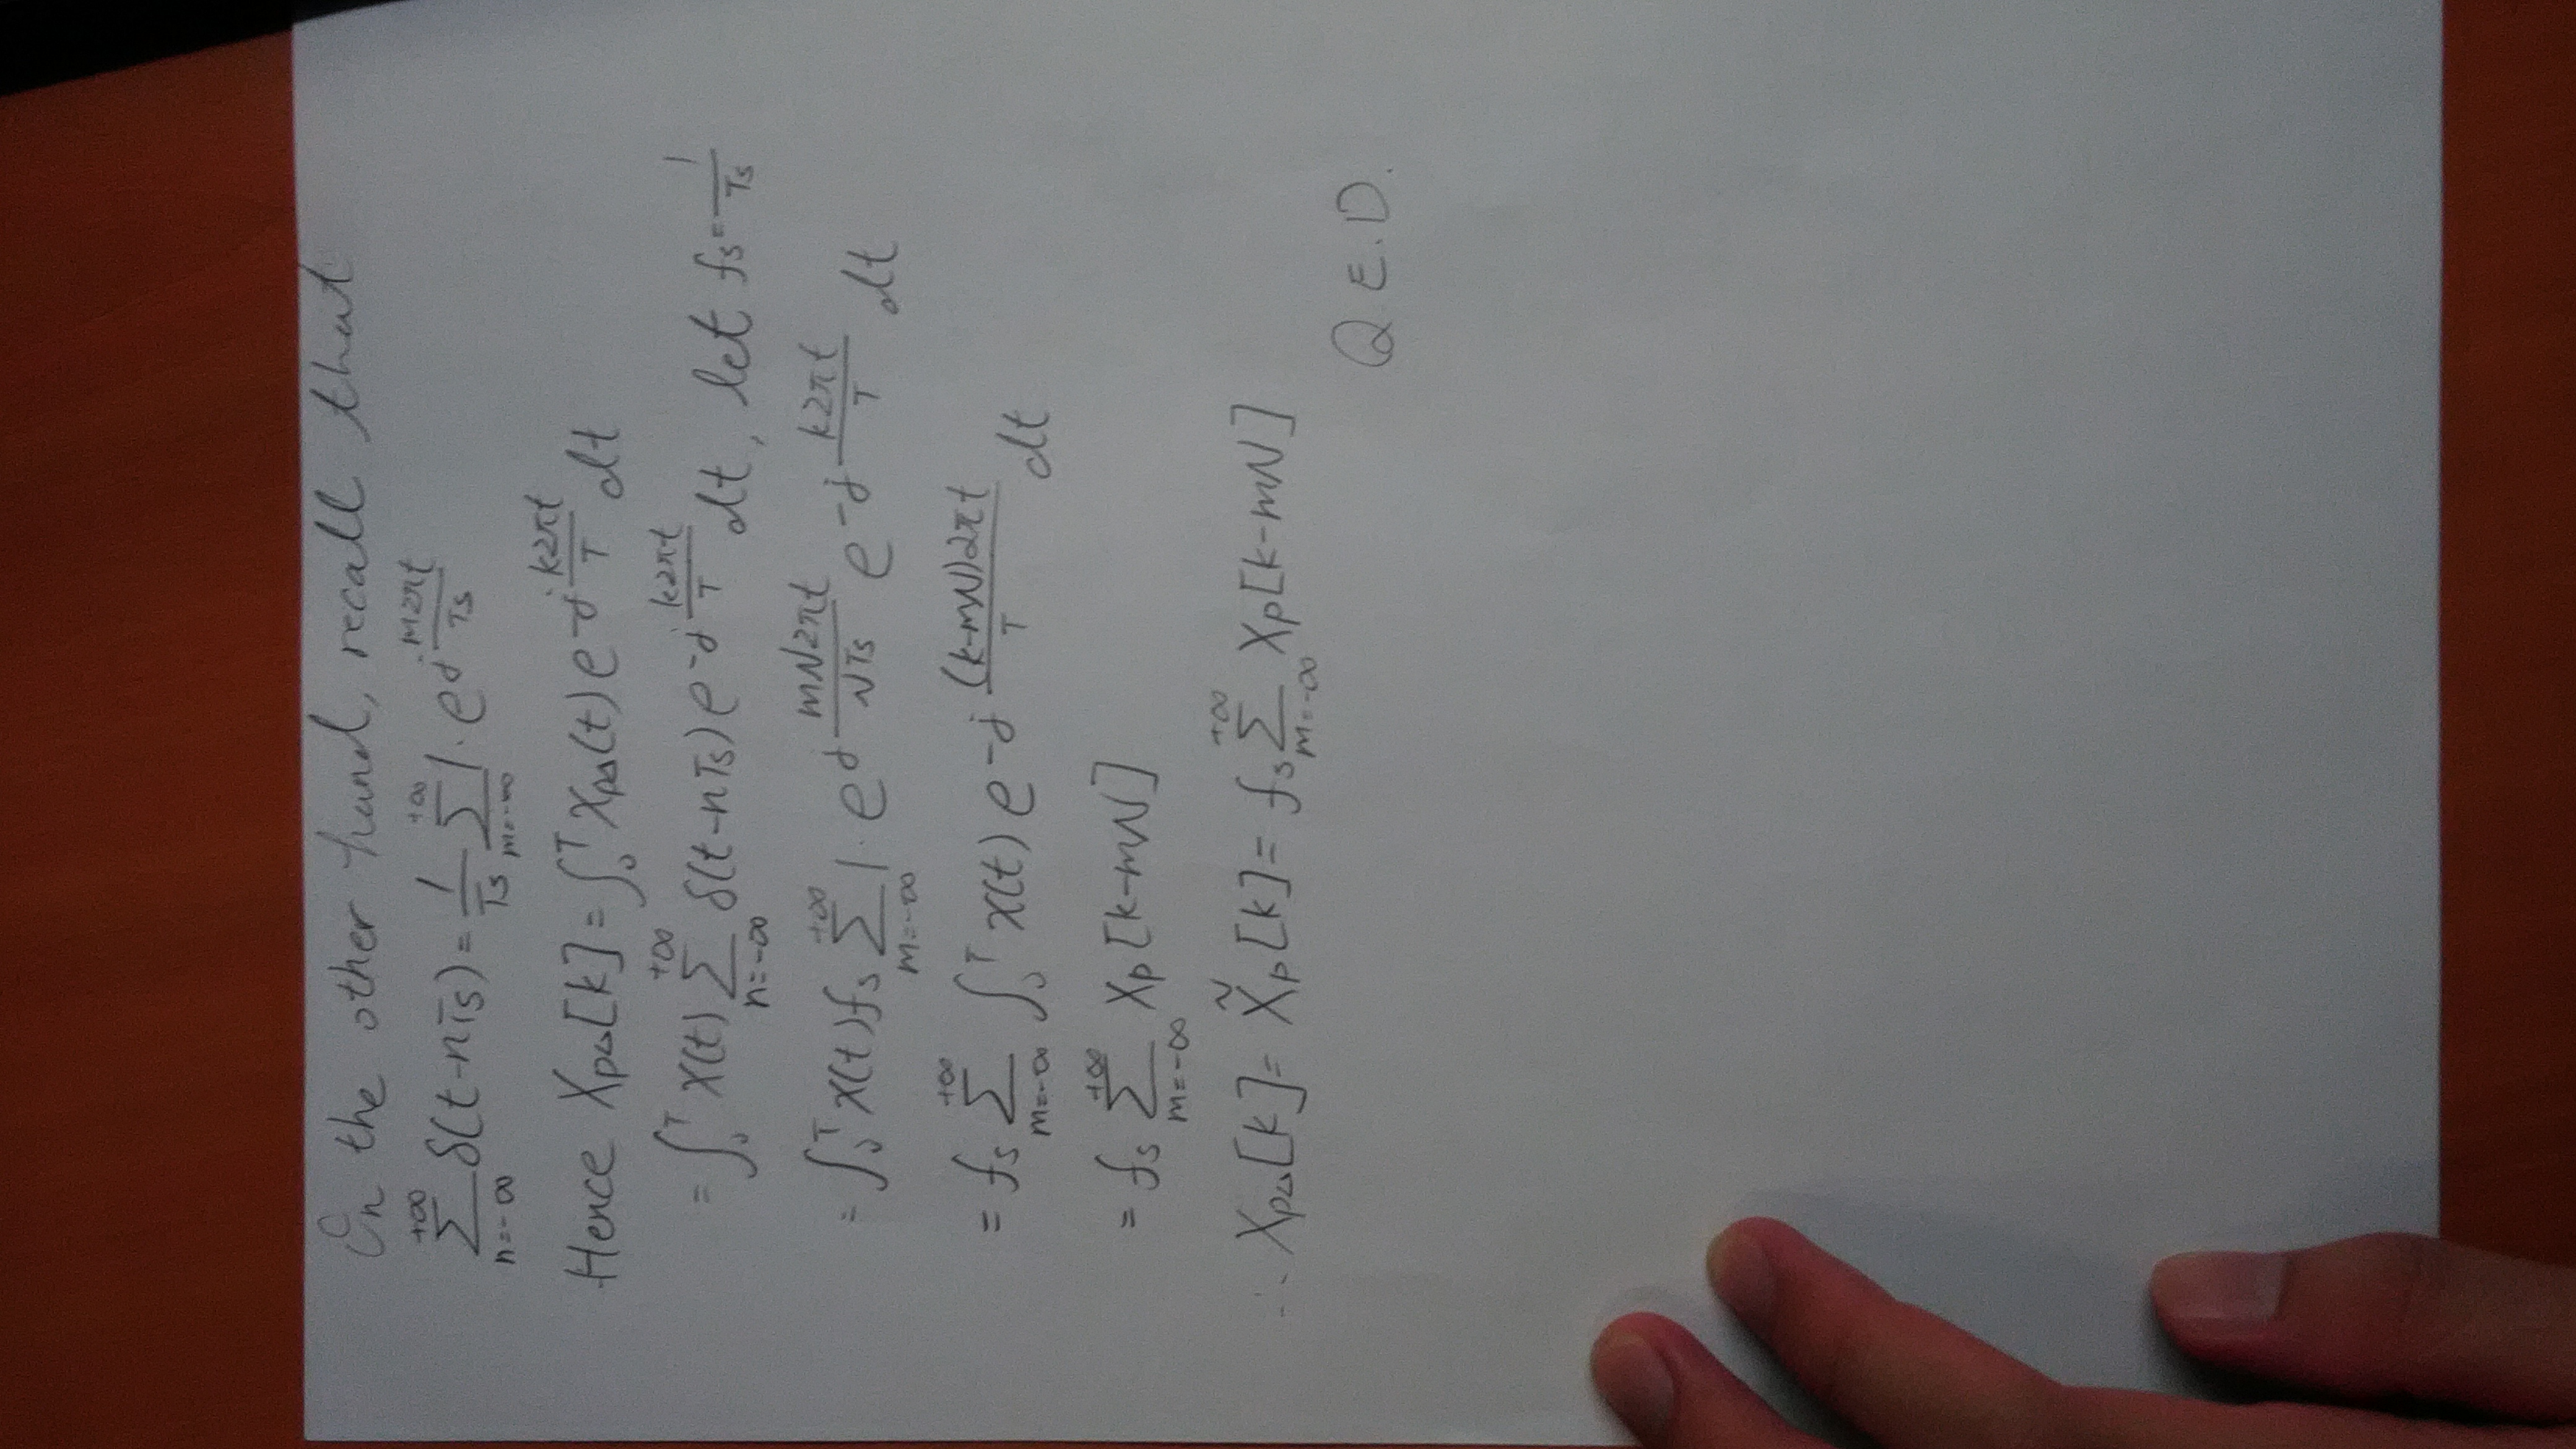 On the other hand, recall that
\sum_{n=-\infty}^{+\infty} δ(t-nTs) = \frac{1}{Ts} \sum_{m=-\infty}^{+\infty} 1 \cdot e^{j\frac{m2πt}{Ts}}
Hence X_{pΔ}[k] = \int_0^T x_{pΔ}(t) e^{-j\frac{k2πt}{T}} dt
= \int_0^T x(t) \sum_{n=-\infty}^{+\infty} δ(t-nTs) e^{-j\frac{k2πt}{T}} dt, let fs = \frac{1}{Ts}
= \int_0^T x(t) fs \sum_{m=-\infty}^{+\infty} 1 \cdot e^{j\frac{mN2πt}{NTs}} e^{-j\frac{k2πt}{T}} dt
= fs \sum_{m=-\infty}^{+\infty} \int_0^T x(t) e^{-j\frac{(k-mN)2πt}{T}} dt
= fs \sum_{m=-\infty}^{+\infty} X_p[k-mN]
∴ X_{pΔ}[k] = \tilde{X}_p[k] = fs \sum_{m=-\infty}^{+\infty} X_p[k-mN]
Q.E.D.